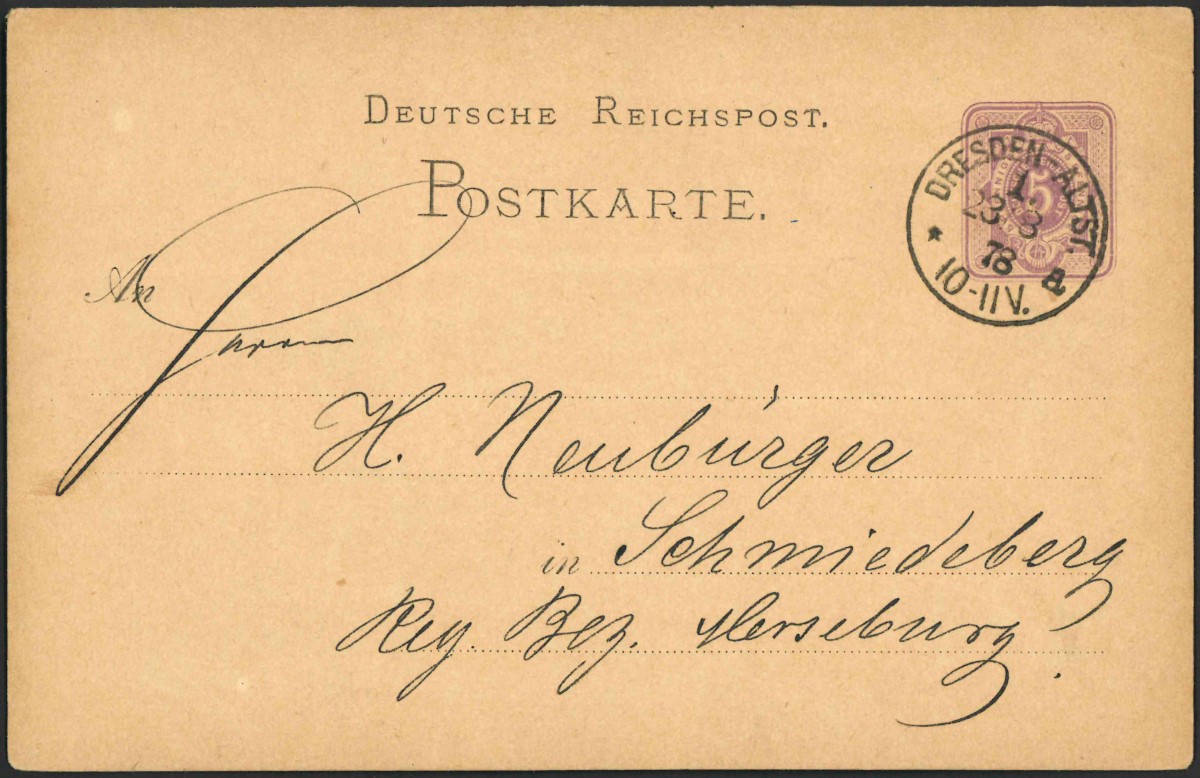 DEUTSCHE REICHSPOST.
POSTKARTE.
DRESDEN-ALTST.
1.
23. 3
78
* 10-11V. a
5
An
Herrn
H. Neubürger
in Schmiedeberg
Reg. Bez. Merseburg.